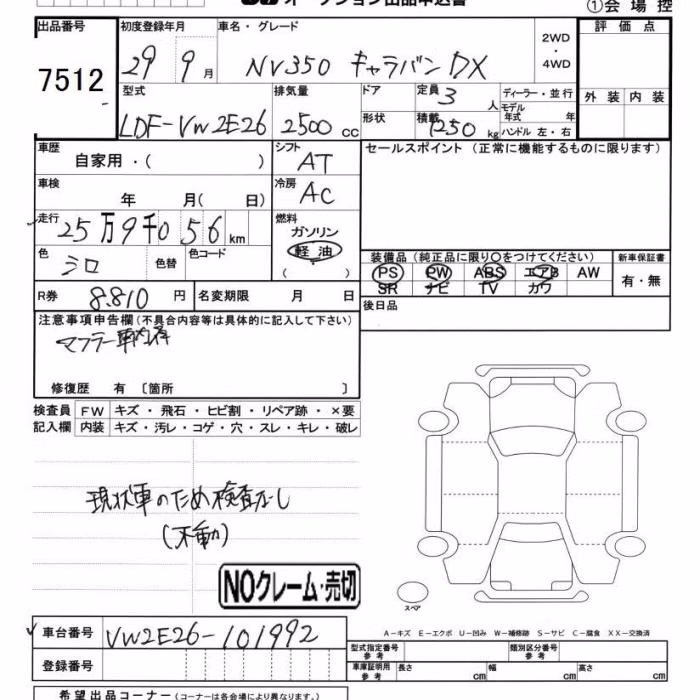 オークション出品申込書
①会場控
出品番号 初度登録年月 車名・グレード 評価点
7512 29 9月 NV350 キャラバン DX 2WD・4WD
型式 排気量 ドア 定員 ディーラー・並行 外装 内装
3人 モデル年式 年
LDF-VW2E26 2500cc 形状 積載 1250kg ハンドル 左・右
車歴 自家用・( ) シフト AT セールスポイント (正常に機能するものに限ります)
車検 年 月( 日) 冷房 AC
走行 25万9千056km 燃料 ガソリン 軽油 ( )
色 シロ 色替 色コード
装備品 (純正品に限り○をつけてください) 新車保証書
PS PW ABS エアB AW 有・無
SR ナビ TV カワ
R券 8.810円 名変期限 月 日 後日品
注意事項申告欄 (不具合内容等は具体的に記入して下さい)
マフラー車内済
修復歴 有 〔箇所 〕
検査員 FW キズ・飛石・ヒビ割・リペア跡・×要
記入欄 内装 キズ・汚レ・コゲ・穴・スレ・キレ・破レ
現状車のため検査なし
(不動)
NOクレーム・売切
スペア
車台番号 VW2E26-101992
A−キズ E−エクボ U−凹み W−補修跡 S−サビ C−腐食 XX−交換済
登録番号 型式指定番号 参考 類別区分番号 参考
車庫証明用 参考 長さ cm 幅 cm 高さ cm
希望出品コーナー (コーナーは各会場により異なります。)